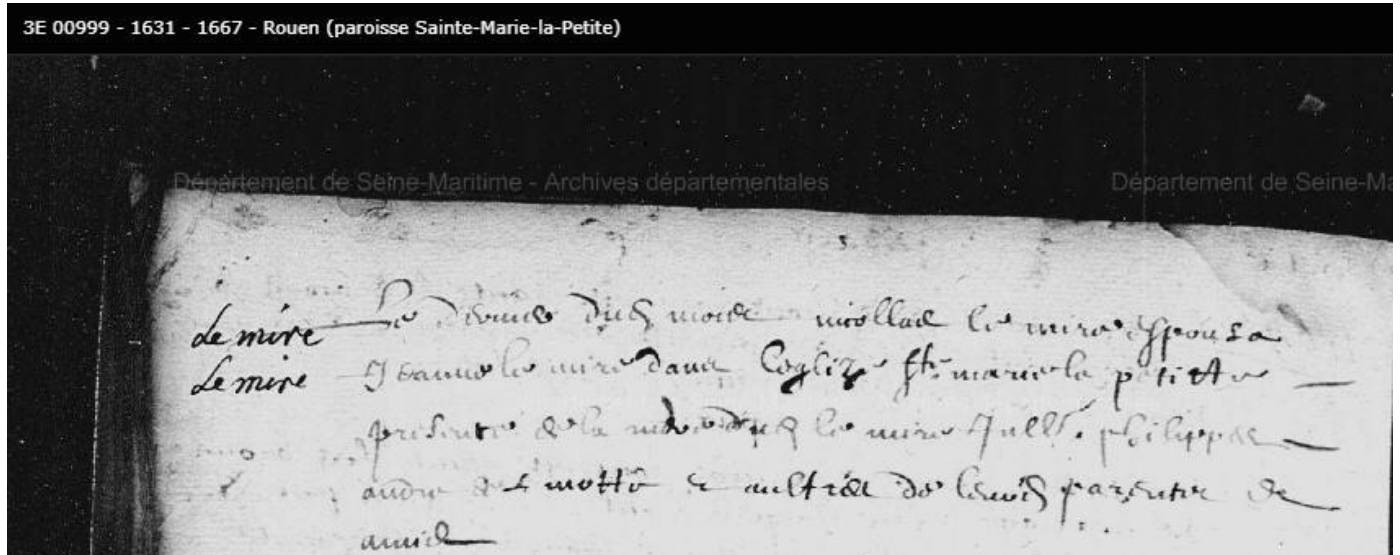 3E 00999 - 1631 - 1667 - Rouen (paroisse Sainte-Marie-la-Petite)
Département de Seine-Maritime - Archives départementales
Département de Seine-Ma
Le mire Le dud mois nicollas le mire espousa
Le mire Jeanne le mire dans leglize Ste marie la petitte
presente de la dud le mire philippes
andre motte aultres de leurs parentz
amis